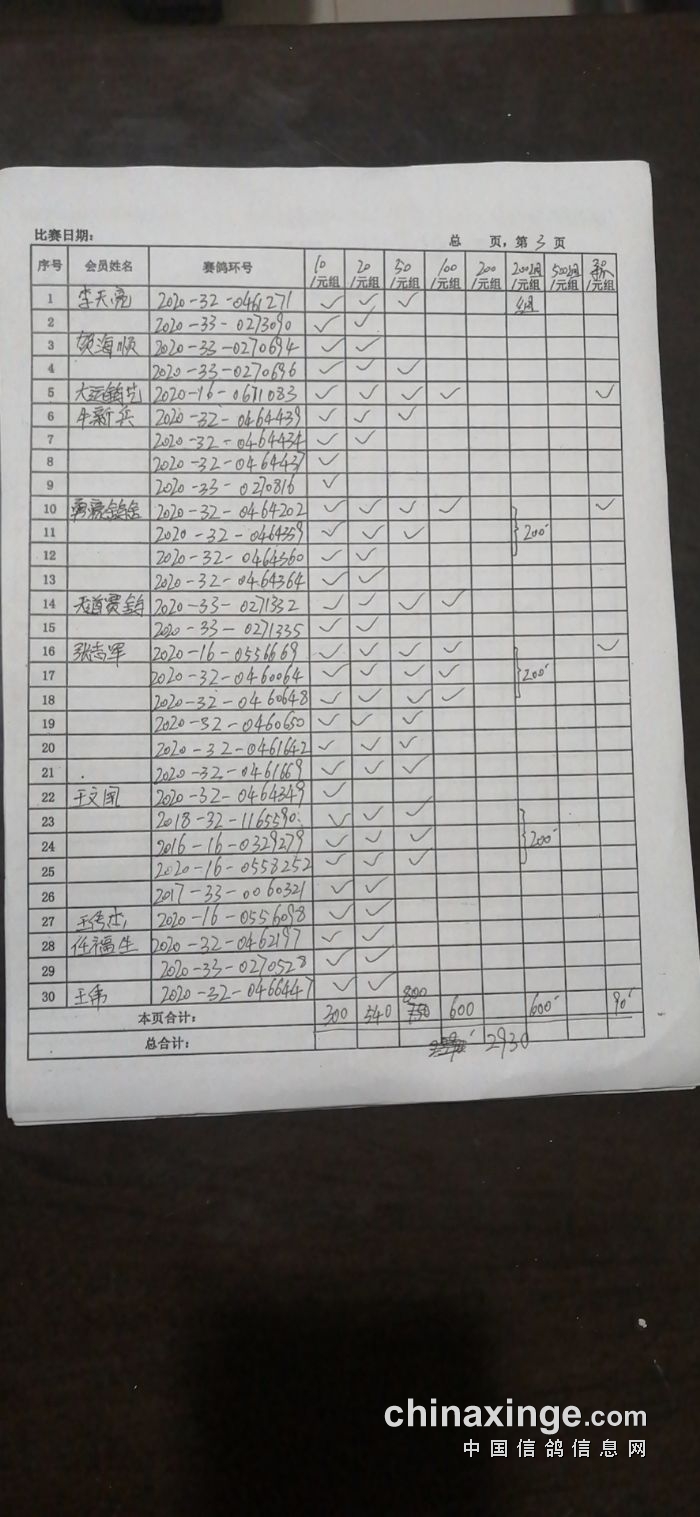 比赛日期: 总 页, 第 3 页
序号 会员姓名 赛鸽环号 10/元组 20/元组 50/元组 100/元组 200/元组 200组/元组 500组/元组 30/元组
组
1 李天亮 2020-32-0461271 ✓ ✓ ✓
2 2020-33-0273090 ✓ ✓
3 海顺 2020-33-0270694 ✓ ✓
4 2020-33-0270696 ✓ ✓ ✓
5 2020-16-0671083 ✓ ✓ ✓ ✓ ✓
6 牛新兵 2020-32-0464439 ✓ ✓ ✓
7 2020-32-0464434 ✓ ✓
8 2020-32-0464437 ✓
9 2020-33-0270816 ✓
10 2020-32-0464202 ✓ ✓ ✓ ✓ ✓
11 2020-32-0464359 ✓ ✓ ✓ 200
12 2020-32-0464360 ✓ ✓
13 2020-32-0464364 ✓ ✓
14 2020-33-0271332 ✓ ✓ ✓ ✓
15 2020-33-0271335 ✓ ✓
16 张志军 2020-16-0556669 ✓ ✓ ✓ ✓ ✓
17 2020-32-0460064 ✓ ✓ ✓ ✓ 200
18 2020-32-0460648 ✓ ✓ ✓ ✓
19 2020-32-0460650 ✓ ✓ ✓
20 2020-32-0461642 ✓ ✓ ✓
21 2020-32-0461669 ✓ ✓ ✓
22 王文国 2020-32-0464349 ✓
23 2018-32-1165590 ✓ ✓ ✓
24 2016-16-0329279 ✓ ✓ ✓ 200
25 2020-16-0558252 ✓ ✓ ✓
26 2017-33-0060321 ✓ ✓
27 2020-16-0556098 ✓ ✓
28 任福生 2020-32-0462197 ✓ ✓
29 2020-33-0270528 ✓ ✓
30 王伟 2020-32-0466447 ✓ ✓
800
本页合计: 300 540 750 600 600 90
总合计: 2930
chinaxinge.com
中国信鸽信息网